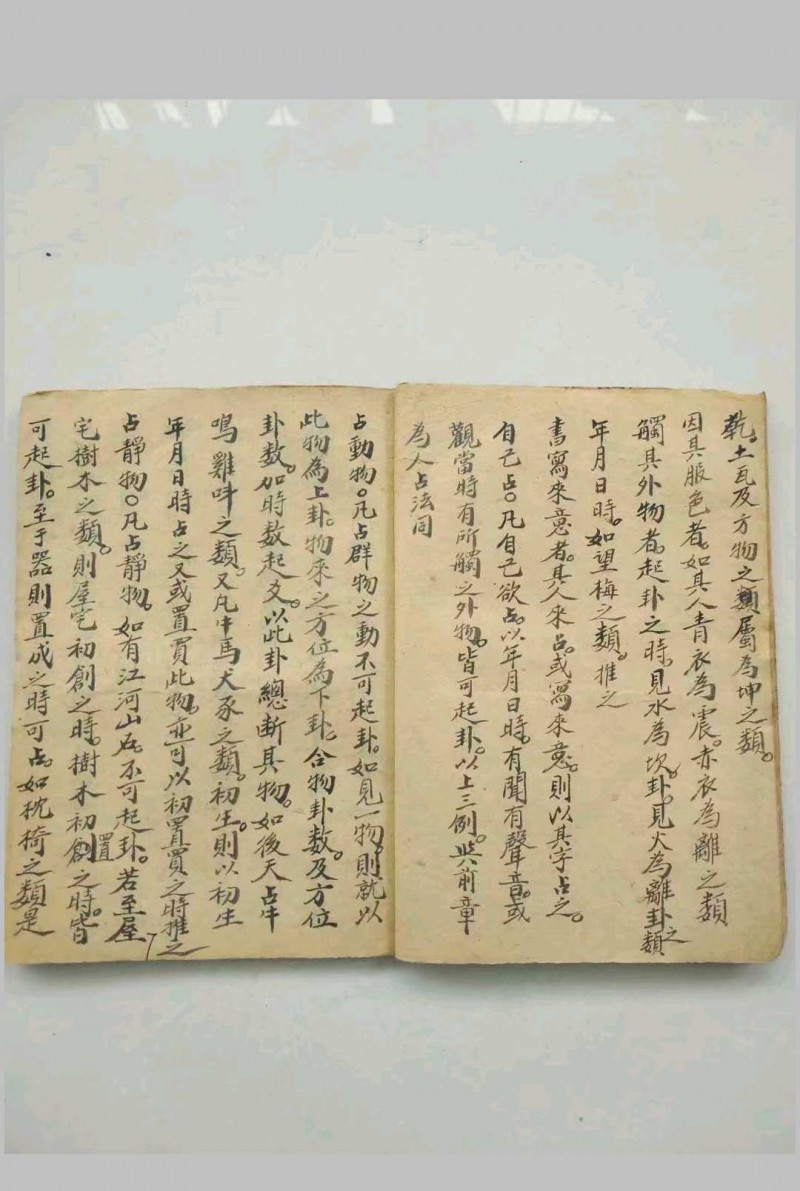 乾。土瓦及方物之類屬為坤之類。
因其服色者。如其人青衣為震。赤衣為離之類
觸其外物者。起卦之時。見水為坎。卦。見火為離卦之類
年月日時。如望梅之類。推之
書寫來意者。其人來占。或寫來意。則以其字占之。
自己占。凡自己欲占。以年月日時。有聞有聲音。或
觀當時有所觸之外物。皆可起卦。以上三例。與前章
為人占法同
占動物。凡占群物之動不可起卦。如見一物。則就以
此物為上卦。物來之方位為下卦。合物卦數。及方位
卦数。加時数起爻。以此卦總断其物。如後天占牛
鳴雞呌之類。又凡牛馬犬豕之類。初生。則以初生
年月日時占之又或置買此物。亦可以初置買之時推之
占静物。凡占静物。如有江河山石。不可起卦。若至屋
宅樹木之類。則屋宅初創之時。樹木初創置之時。皆
可起卦。至于器則置成之时可占。如枕椅之類是